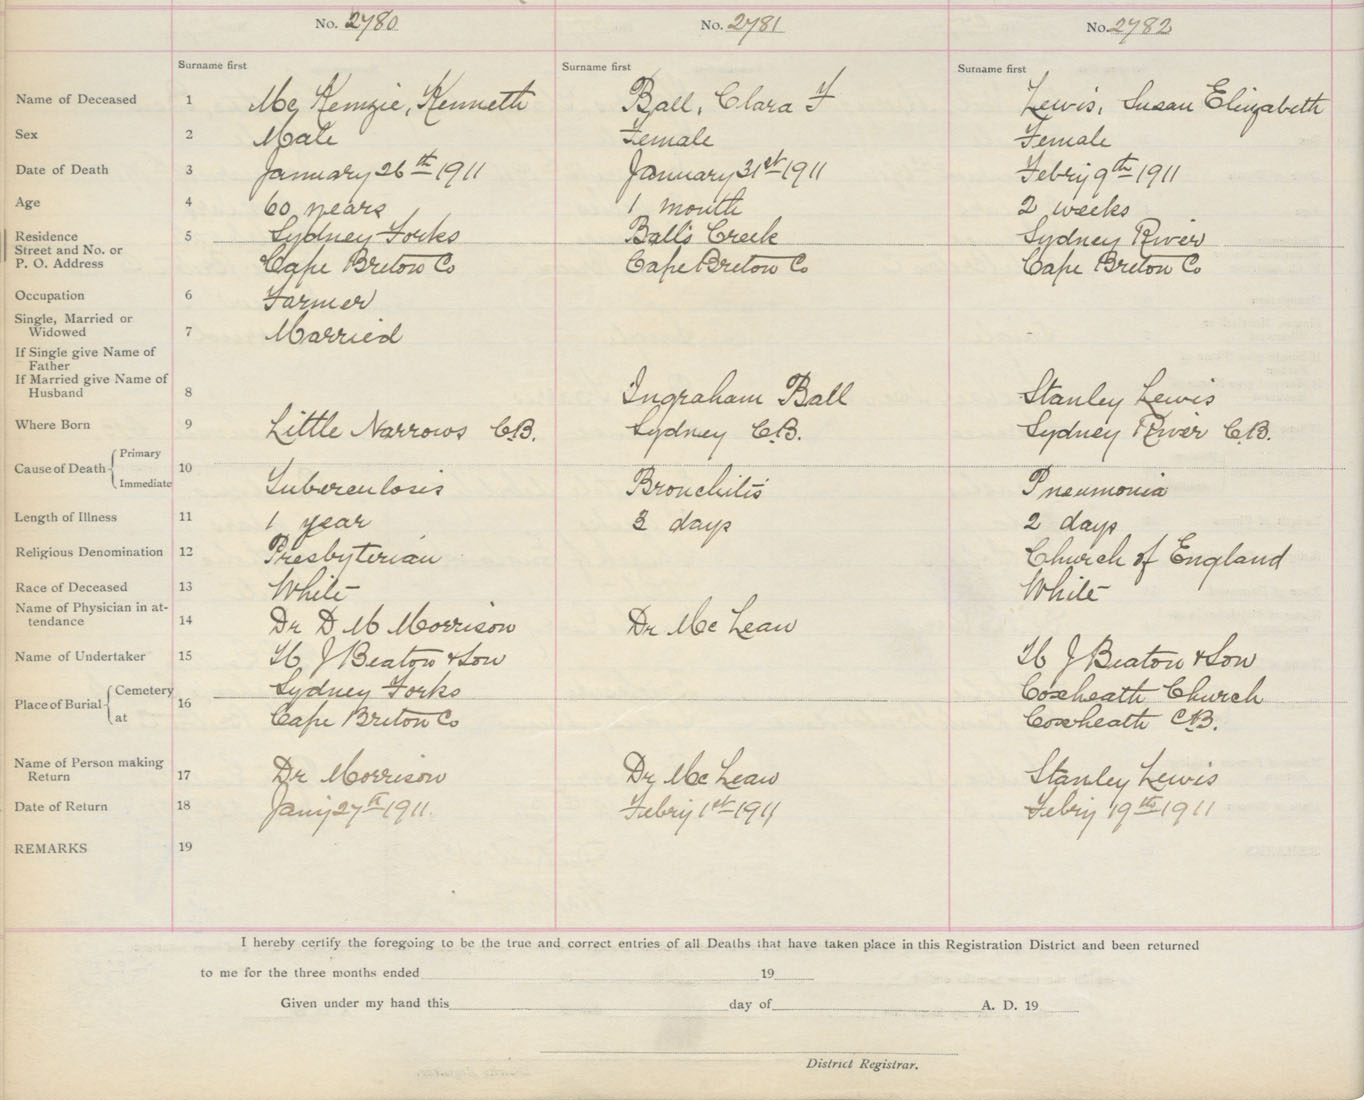 No. 2780 No. 2781 No. 2782
Surname first Surname first Surname first
Name of Deceased 1 Mc Kenzie, Kenneth Ball, Clara F Lewis, Susan Elizabeth
Sex 2 Male Female Female
Date of Death 3 January 26th 1911 January 31st 1911 Febry 9th 1911
Age 4 60 years 1 month 2 weeks
Residence 5 Sydney Forks Ball's Creek Sydney River
Street and No. or
P. O. Address Cape Breton Co Cape Breton Co Cape Breton Co
Occupation 6 Farmer
Single, Married or
Widowed 7 Married
If Single give Name of
Father
If Married give Name of
Husband 8 Ingraham Ball Stanley Lewis
Where Born 9 Little Narrows C.B. Sydney C.B. Sydney River C.B.
Primary
Cause of Death 10
Immediate Tuberculosis Bronchitis Pneumonia
Length of Illness 11 1 year 3 days 2 days
Religious Denomination 12 Presbyterian Church of England
Race of Deceased 13 White White
Name of Physician in at-
tendance 14 Dr D M Morrison Dr Mc Lean
Name of Undertaker 15 J Beaton & Son J Beaton & Son
Cemetery Sydney Forks Coxheath Church
Place of Burial 16
at Cape Breton Co Coxheath C.B.
Name of Person making
Return 17 Dr Morrison Dr Mc Lean Stanley Lewis
Date of Return 18 Jany 27th 1911. Febry 1st 1911 Febry 19th 1911
REMARKS 19
I hereby certify the foregoing to be the true and correct entries of all Deaths that have taken place in this Registration District and been returned
to me for the three months ended 19
Given under my hand this day of A. D. 19
District Registrar.